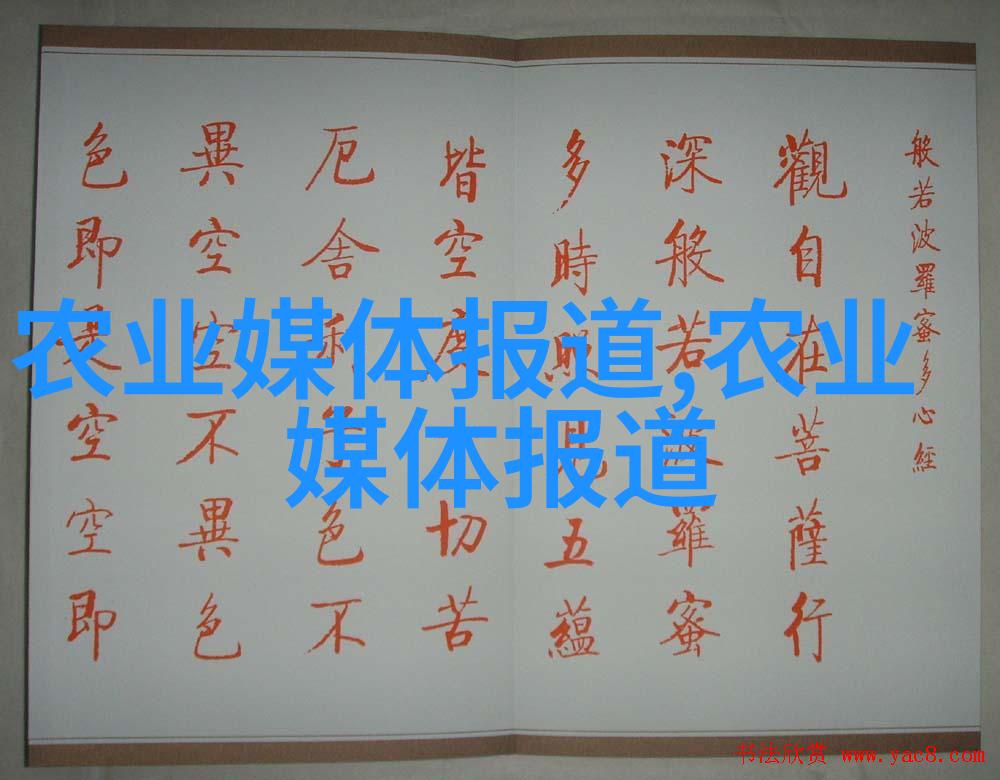 般若波羅蜜多心經
觀自在菩薩行
深般若波羅蜜
多時照見五蘊
皆空度切苦
厄舍利子色不
異空空不異色
色即是空空即
农业媒体报道,农业
媒体报道
书法欣赏 www.yac8.com